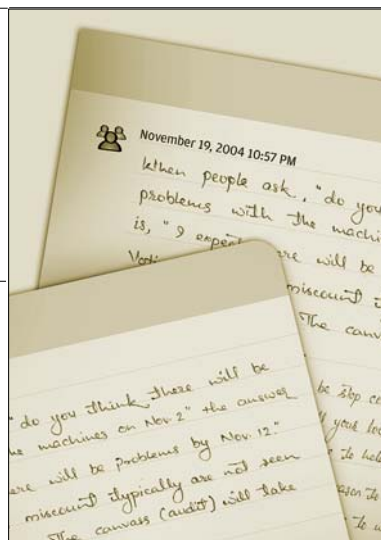 November 19, 2004 10:57 PM
When people ask, "do you
problems with the machi
is, "I expect ere will be
Voti
miscount i
The canv
be stop co
your loc
to hel
eason to
to u
"do you think there will be
machines on Nov. 2" the answer
ere will be problems by Nov. 12."
miscount typically are not seen
The canvass (audit) will take